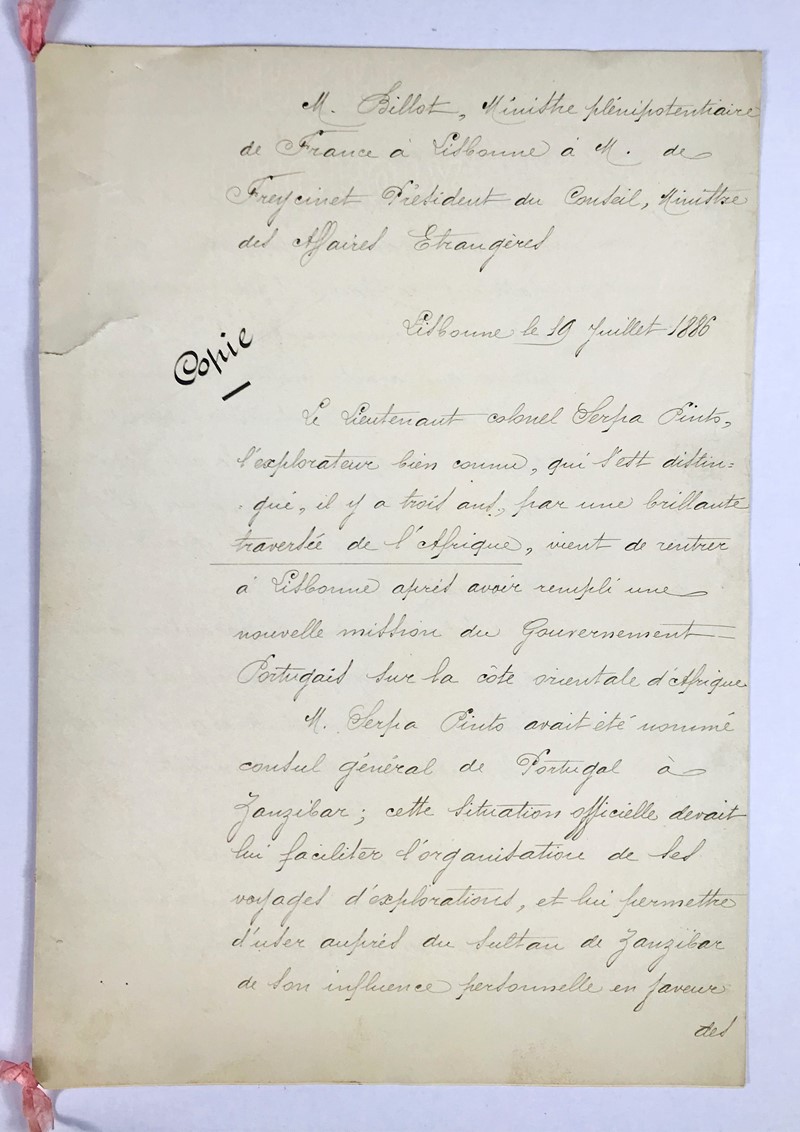 M. Billot, Ministre plénipotentiaire
de France à Lisbonne à M. de
Freycinet Président du Conseil, Ministre
des Affaires Etrangères
Lisbonne le 19 Juillet 1886
Copie
Le Lieutenant colonel Serpa Pinto,
l'explorateur bien connu, qui s'est distin=
gué, il y a trois ans, par une brillante
traversée de l'Afrique, vient de rentrer
à Lisbonne après avoir rempli une
nouvelle mission du Gouvernement
Portugais sur la côte orientale d'Afrique
M. Serpa Pinto avait été nommé
consul général de Portugal à
Zanzibar; cette situation officielle devait
lui faciliter l'organisation de ses
voyages d'explorations, et lui permettre
d'user auprès du sultan de Zanzibar
de son influence personnelle en faveur
des